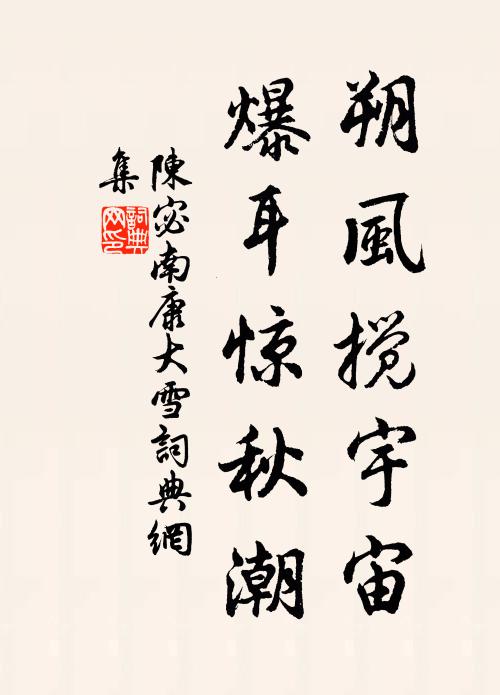 朔風攪宇宙
爆耳惊秋潮
陳宓南康大雪詞典網
集
詞典
网